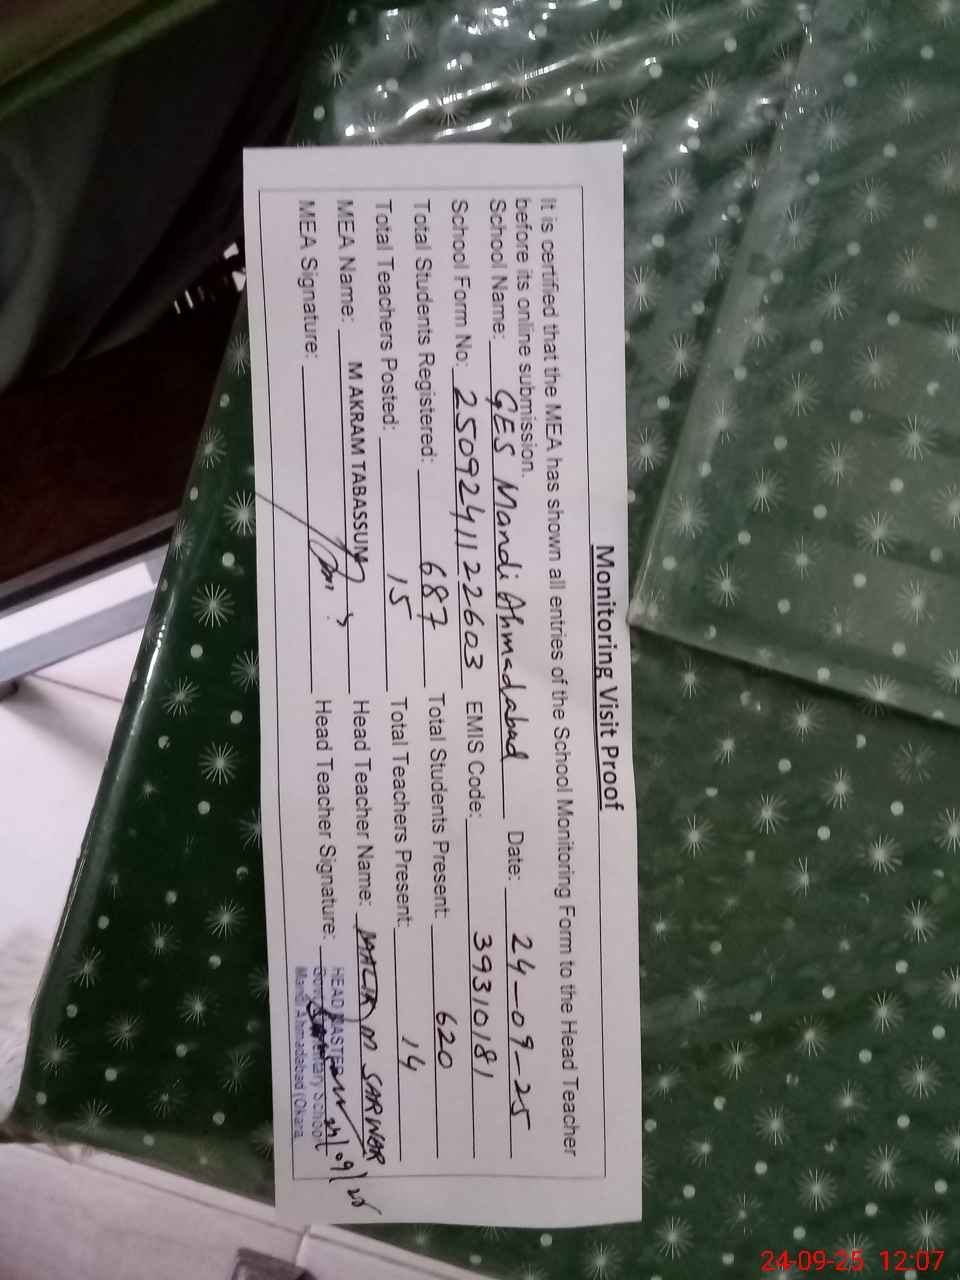 Monitoring Visit Proof
It is certified that the MEA has shown all entries of the School Monitoring Form to the Head Teacher
before its online submission.
School Name: GES Mandi Ahmadabad Date: 24-09-25
School Form No: 250924112 2603 EMIS Code: 39310181
Total Students Registered: 687 Total Students Present: 620
Total Teachers Posted: 15 Total Teachers Present: 14
MEA Name: M AKRAM TABASSUM Head Teacher Name: MALIK M SARWAR
MEA Signature: Head Teacher Signature:
HEAD MASTER
Govt. Elementary School
Mandi Ahmadabad (Okara
24/09/25
24-09-25 12:07